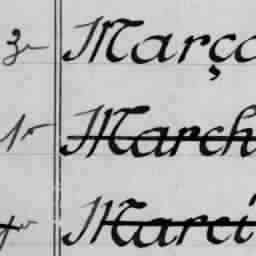 3 Març
1 March
Marci